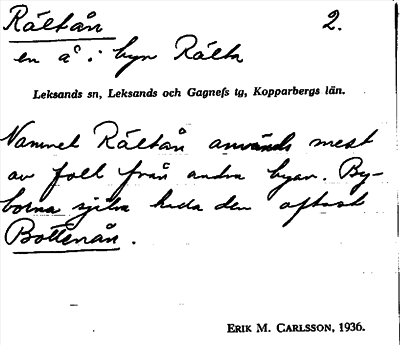 Rältån 2.
en å i byn Rälta
Leksands sn, Leksands och Gagnefs tg, Kopparbergs län.
Namnet Rältån används mest
av folk från andra byar. By-
borna själva kalla den oftast
Bottenån.
ERIK M. CARLSSON, 1936.